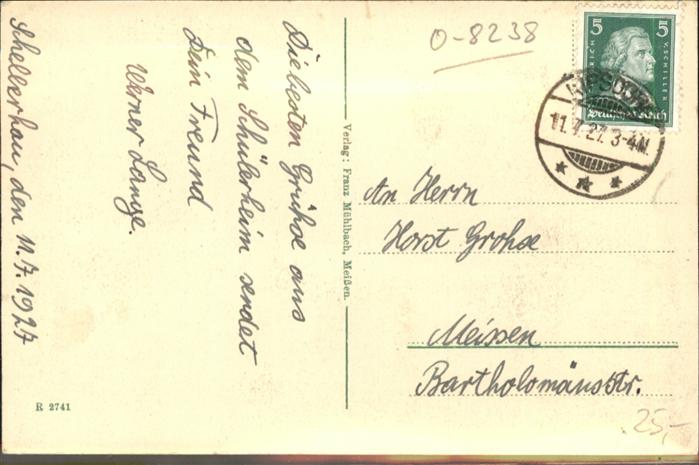 Schellerhau, den 11.7.1927
Die besten Grühse aus
dem Schülerheim sendet
Dein Freund
Werner Lange.
R 2741
Verlag: Franz Mühlbach, Meißen.
O-8238
5 5
V. SCHILLER
Deutsches Reich
KIPSDORF
11.7.27. 3-4N.
An Herrn
Horst Grohse
Meissen
Bartholomäusstr.
25,-